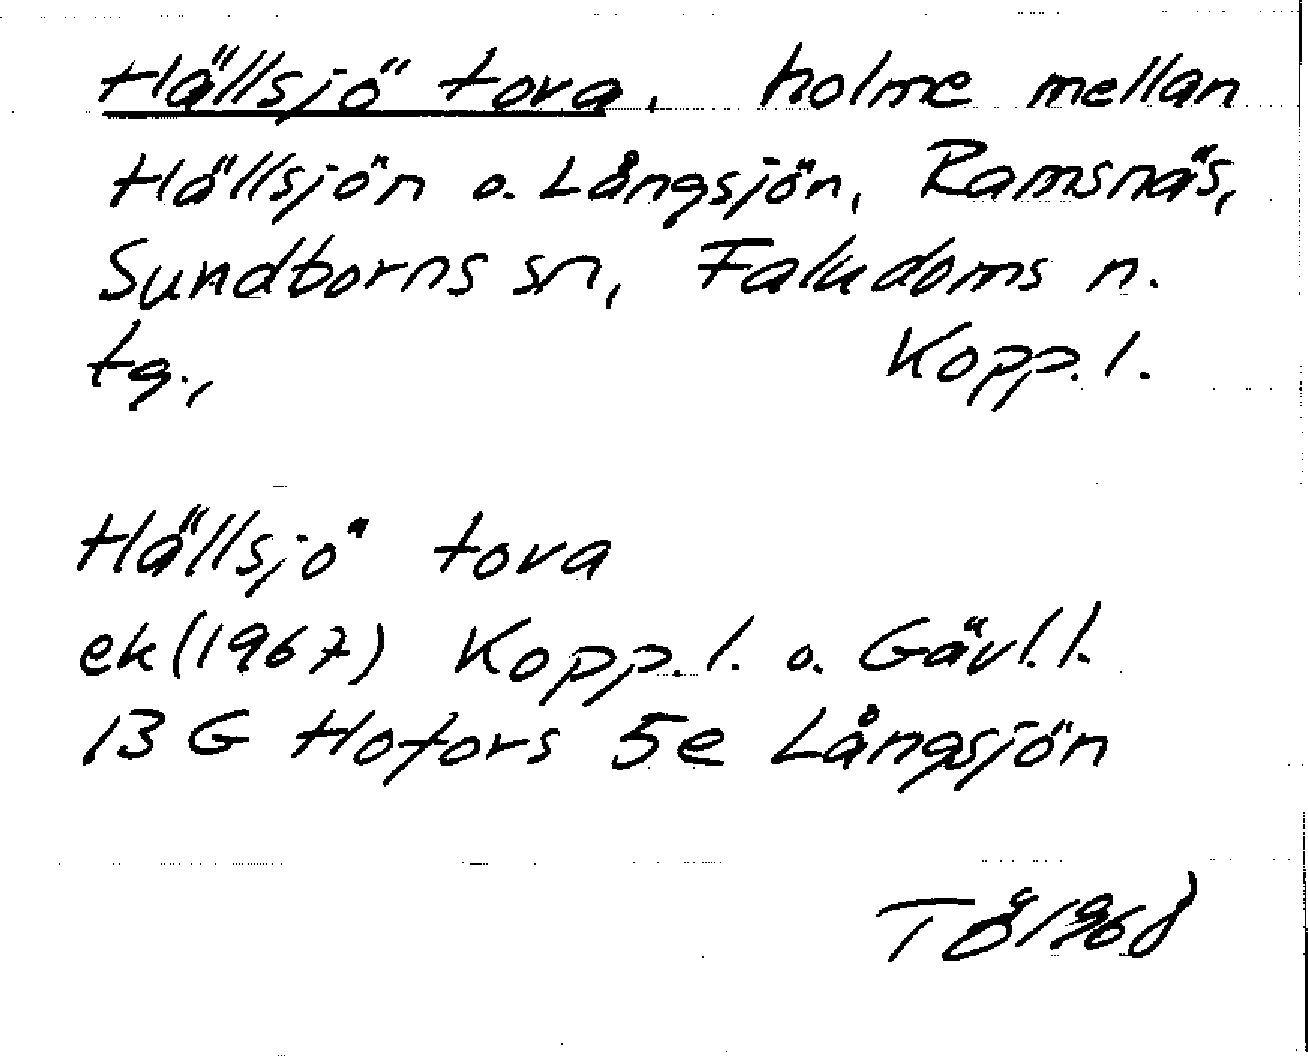 Hällsjö tova, holme mellan
Hällsjön o. Långsjön, Ramsnäs,
Sundborns sn, Faludoms n.
tg., Kopp. l.
Hällsjö tova
ek (1967) Kopp. l. o. Gävl. l.
13 G Hofors 5e Långsjön
TÅ 1968